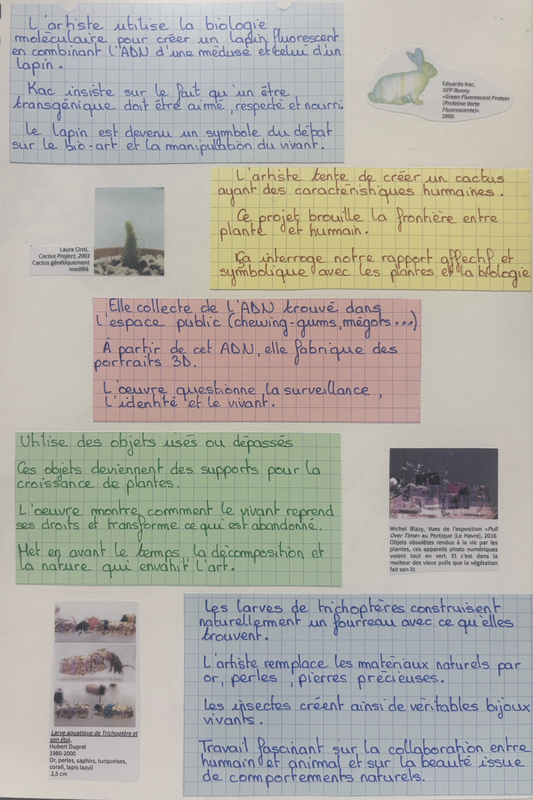 L'artiste utilise la biologie
moléculaire pour créer un lapin fluorescent
en combinant l'ADN d'une méduse et celui d'un
lapin.
Kac insiste sur le fait qu'un être
transgénique doit être aimé, respecté et nourri.
Le lapin est devenu un symbole du débat
sur le bio-art et la manipulation du vivant.
Eduardo Kac,
GFP Bunny
«Green Fluorescent Protein
(Proteine Verte
Fluorescente)».
2000
L'artiste tente de créer un cactus
ayant des caractéristiques humaines.
Ce projet brouille la frontière entre
plante et humain.
Ça interroge notre rapport affectif et
symbolique avec les plantes et la biologie
Laura Cinti,
Cactus Project, 2001
Cactus génétiquement
modifié
Elle collecte de l'ADN trouvé dans
l'espace public (chewing-gums, mégots...)
À partir de cet ADN, elle fabrique des
portraits 3D.
L'œuvre questionne la surveillance,
l'identité et le vivant.
Utilise des objets usés ou dépassés
Ces objets deviennent des supports pour la
croissance de plantes.
L'oeuvre montre commment le vivant reprend
ses droits et transforme ce qui est abandonné.
Met en avant le temps, la décomposition et
la nature qui envahit l'art.
Michel Blazy, Vues de l'exposition «Pull
Over Time» au Portique (Le Havre), 2016
Objets obsolètes rendus à la vie par les
plantes, ces appareils photo numériques
voient tout en vert. Et c'est dans la
moiteur des vieux pulls que la végétation
fait son lit.
Les larves de trichoptères construisent
naturellement un fourreau avec ce qu'elles
trouvent.
L'artiste remplace les matériaux naturels par
or, perles, pierres précieuses.
Les insectes créent ainsi de véritables bijoux
vivants.
Travail fascinant sur la collaboration entre
humain et animal et sur la beauté issue
de comportements naturels.
Larve aquatique de Trichoptère et
son étui,
Hubert Duprat
1980-2000
Or, perles, saphirs, turquoises,
corail, lapis lazuli
2,5 cm